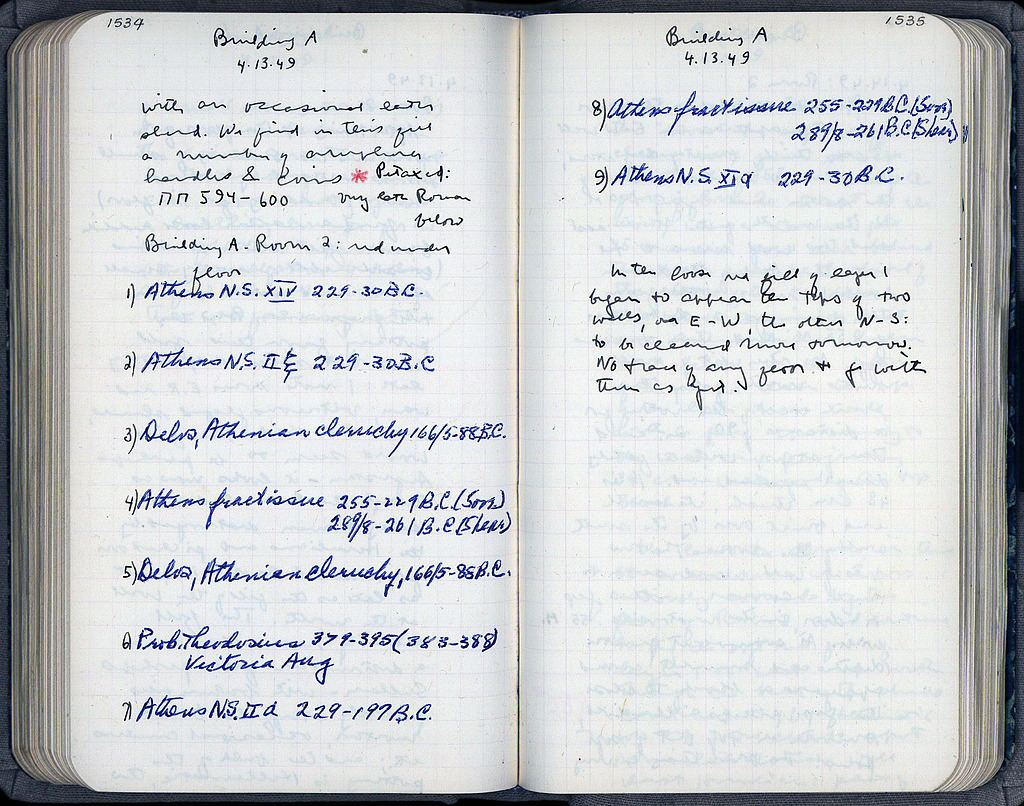 1534
Building A
4.13.49
with an occasional later
sherd. We find in this fill
a number of amphora
handles & coins * Pitaxed:
ΠΠ 594-600 very late Roman
below
Building A. Room 2: red under
floor
1) Athens N.S. XIV 229-30 B.C.
2) Athens N.S. II 229-30 B.C
3) Delos, Athenian cleruchy 166/5-88 B.C.
4) Athens fract issue 255-229 B.C. (Svor)
289/8-261 B.C (Shear)
5) Delos, Athenian cleruchy, 166/5-88 B.C.
6) Prob. Theodosius 379-395 (383-388)
Victoria Aug
7) Athens N.S. II a 229-197 B.C.
1535
Building A
4.13.49
8) Athens fract issue 255-229 B.C. (Svor)
289/8-261 B.C (Shear)
9) Athens N.S. XI a 229-30 B.C.
In the loose red fill of layer 1
began to appear the tops of two
walls, one E-W, the other N-S:
to be cleaned more tomorrow.
No trace of any floor to go with
them as yet.